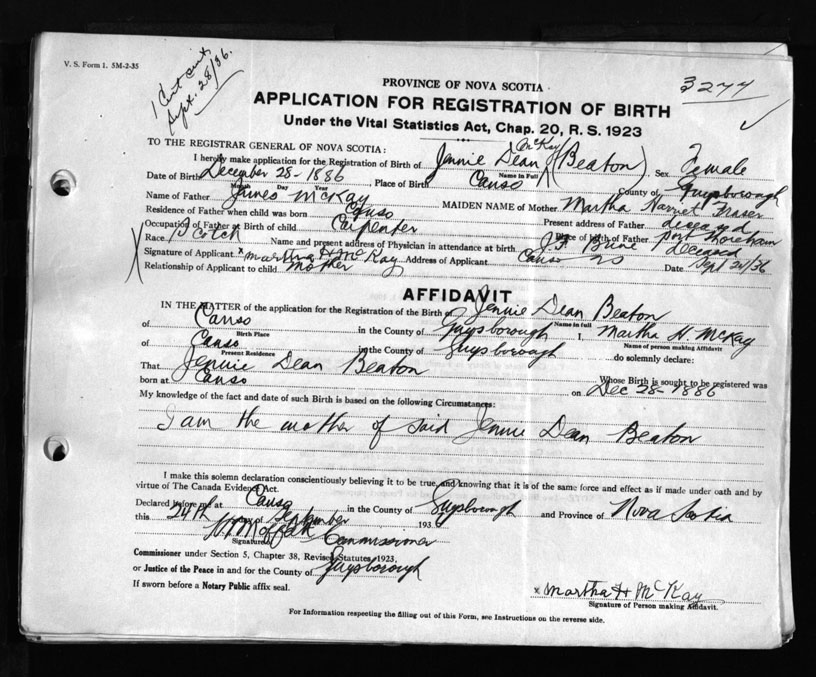 V. S. Form 1. 5M-2-35
1 Cert
Sept. 28/36.
3277
PROVINCE OF NOVA SCOTIA
APPLICATION FOR REGISTRATION OF BIRTH
Under the Vital Statistics Act, Chap. 20, R. S. 1923
TO THE REGISTRAR GENERAL OF NOVA SCOTIA:
McKay
I hereby make application for the Registration of Birth of Jennie Dean (Beaton) Sex Female
Name in Full
Date of Birth December 28-1886 Place of Birth Canso County of Guysborough
Month Day Year
Name of Father James McKay MAIDEN NAME of Mother Martha Harriet Fraser
Residence of Father when child was born Canso Present address of Father deceased
Occupation of Father at Birth of child Carpenter Place of birth of Father Port Shoreham
Race Scotch Name and present address of Physician in attendance at birth J. F. deceased
Signature of Applicant x Martha H McKay Address of Applicant Canso NS Date Sept 24/36
Relationship of Applicant to child Mother
AFFIDAVIT
IN THE MATTER of the application for the Registration of the Birth of Jennie Dean Beaton
Name in full
of Canso in the County of Guysborough I, Martha H McKay
Birth Place Name of person making Affidavit
of Canso in the County of Guysborough do solemnly declare:
Present Residence
That Jennie Dean Beaton Whose Birth is sought to be registered was
born at Canso on Dec 28-1886
My knowledge of the fact and date of such Birth is based on the following Circumstances:
I am the mother of said Jennie Dean Beaton
I make this solemn declaration conscientiously believing it to be true, and knowing that it is of the same force and effect as if made under oath and by
virtue of The Canada Evidence Act.
Declared before me at Canso in the County of Guysborough and Province of Nova Scotia
this 24th day of September 1936
Moffatt Commissioner
Signature
Commissioner under Section 5, Chapter 38, Revised Statutes 1923,
or Justice of the Peace in and for the County of Guysborough
If sworn before a Notary Public affix seal.
x Martha H McKay
Signature of Person making Affidavit.
For Information respecting the filling out of this Form, see Instructions on the reverse side.